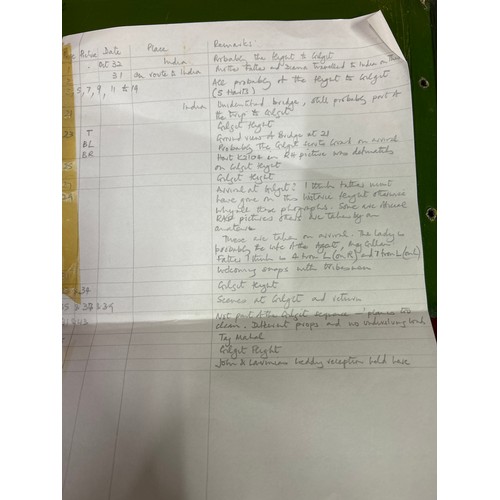 Picture Date Place Remarks:
Oct 32 India Probably the flight to Gilgit
31 on route to India Mother Father and travelled to India on this
5, 7, 9, 11 to 19 All probably of the flight to Gilgit
(5 Harts)
India Unidentified bridge, still probably part of
the trip to Gilgit
21 Gilgit flight
22 T Ground view of Bridge at 21
BL Probably the Gilgit Scouts Guard on arrival
BR Hart on RH picture was definitely
on Gilgit flight
Gilgit flight
Arrival at Gilgit? I think Father must
have gone on this historic flight otherwise
why all these photographs. Some are official
RAF pictures others are taken by an
amateur
These are taken on arrival. The lady is
probably the wife of the Agent,
Father I think is 4 from L (on R) and from L (on L)
Welcoming snaps with Tribesmen
& 34 Gilgit flight
& 37 & 39 Scenes at Gilgit and return
Not part of the Gilgit sequence - planes too
clean. Different props and no undercling
Taj Mahal
Gilgit flight
John & Lavinia's wedding reception held here